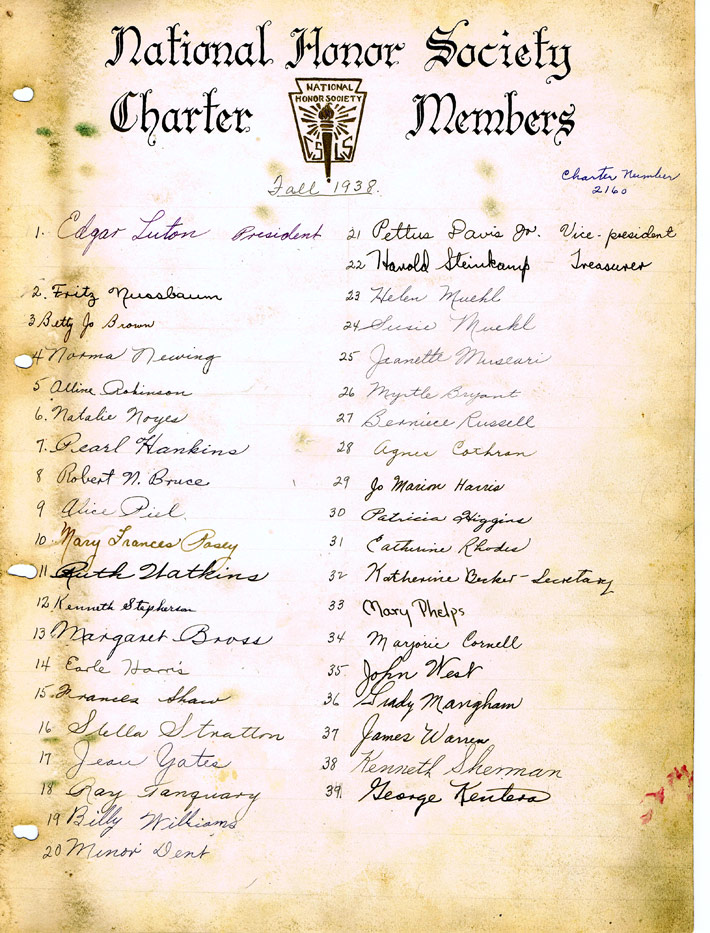 National Honor Society
Charter Members
NATIONAL
HONOR SOCIETY
CSLS
Fall 1938.
Charter Number
2160
1. Edgar Luton President
2. Fritz Nussbaum
3 Betty Jo Brown
4 Norma Newing
5 Alline Robinson
6. Natalie Noyes
7. Pearl Hankins
8 Robert N. Bruce
9 Alice Piel
10. Mary Frances Posey
11 Ruth Watkins
12 Kenneth Stephenson
13 Margaret Bross
14 Earle Harris
15 Frances Shaw
16 Stella Stratton
17 Jean Yates
18 Ray Tanquary
19 Billy Williams
20 Minor Dent
21 Pettus Davis Jr. Vice-president
22 Harold Steinkamp Treasurer
23 Helen Muehl
24 Susie Muehl
25 Jeanette Museari
26 Myrtle Bryant
27 Berniece Russell
28 Agnes Cothron
29 Jo Marion Harris
30 Patricia Higgins
31 Catherine Rhodes
32 Katherine Becker - Secretary
33 Mary Phelps
34 Marjorie Cornell
35 John West
36 Grady Mangham
37 James Warren
38 Kenneth Sherman
39. George Kentera